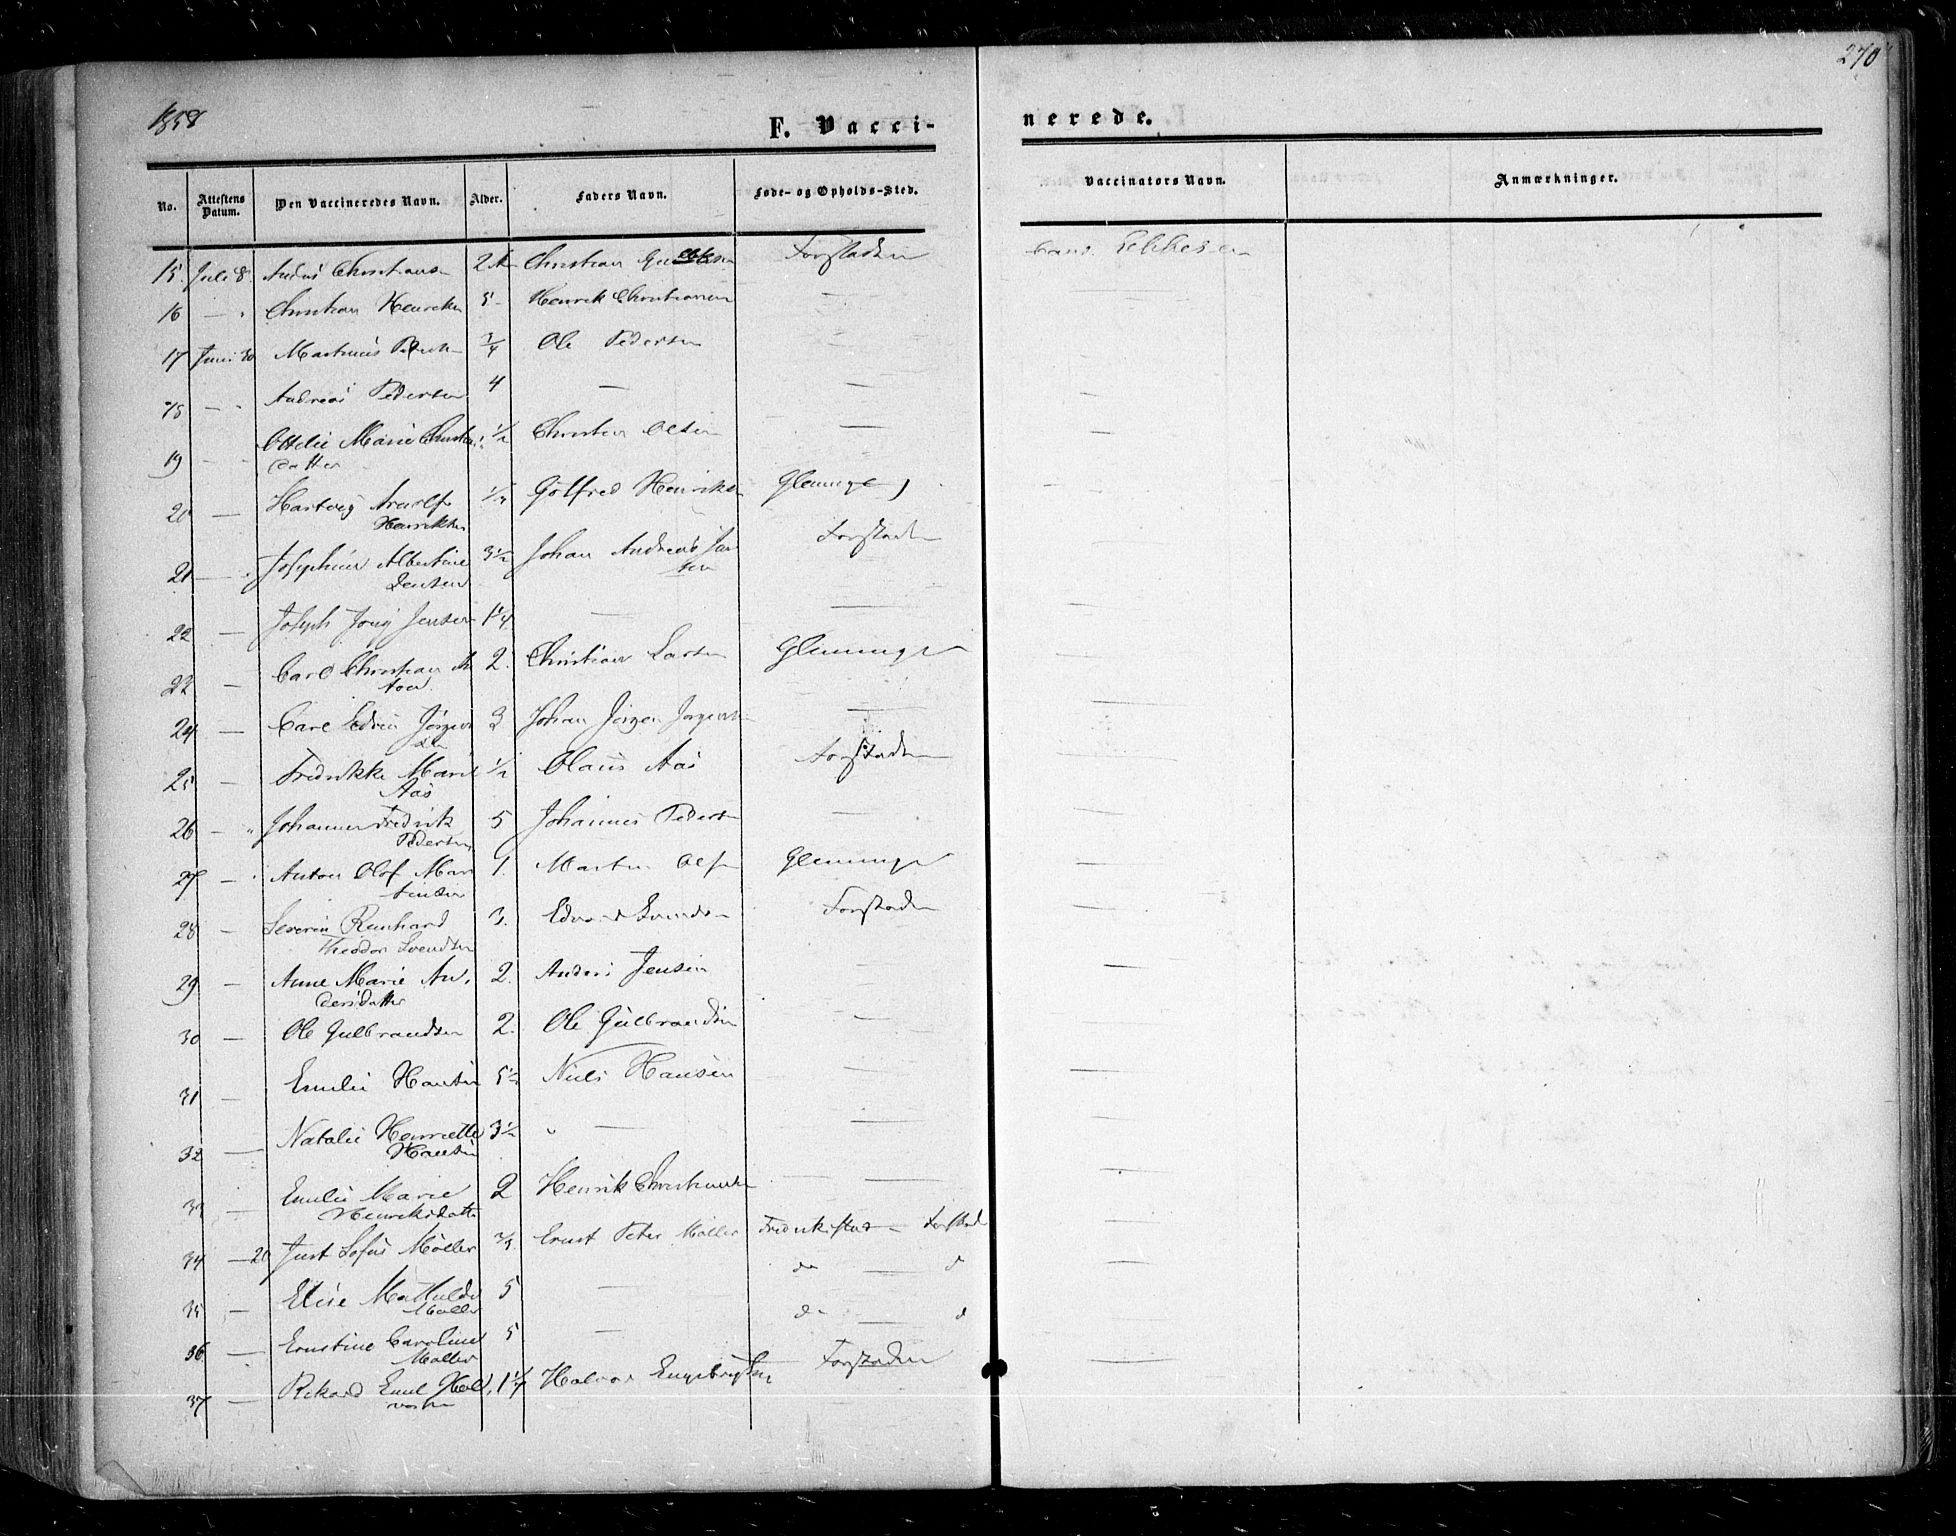 270
1858
F. Vacci-
nerede.
No. Attestens Datum. Den Vaccineredes Navn. Alder. Faders Navn. Føde- og Opholds-Sted. Vaccinators Navn. Anmærkninger.
15. Juli 8. Christian Forstaden
16 — " Christian Henriksen 5 Henrik Christiansen —
17 Juni 30 3/4 Ole Pedersen —
18 — " Andreas Pedersen 4 — —
19 — Ottilie Marie 1/2 Christian Olsen —
datter
20 — Hartvig Gotfred Henriksen Glemminge
Henriksen
21 — " Josephine Albertine 3 1/2 Johan Andreas Jen Forstaden
Jensen sen
22 — Joseph Jensen 1 1/4 — —
— Carl Christian 2. Christian Larsen Glemminge
24 — Carl Edvin Jørgen 3 Johan Jørgen Jørgensen —
sen
25 — Fredrikke Marie 1/2 Olaus Aas Forstaden
Aas
26 — " Johannes Fredrik 5 Johannes Pedersen —
Pedersen
27 — " Anton Olof Mar 1. Martin Olsen Glemminge
tinsen
28 — Severin 3. Edvard Svendsen Forstaden
Theodor Svendsen
29 — Anne Marie An- 2. Anders Jensen —
dersdatter
30 — Ole Gulbrandsen 2. Ole Gulbrandsen —
31 — Emilie Hansen 5 1/2 Niels Hansen —
32 — Natalie Henriette 3 1/2 " — —
Hansen
33 — Emilie Marie 2 Henrik Christiansen —
Henriksdatter
34 — 20 Just Sofus Møller Ernst Peter Møller Fredrikstad — Forstad
35 — Elise Mathilde 5 — do — d
Møller
36 — Ernstine Caroline 5 — do — d
Møller
37 — Rikard Emil Hal- 1 1/4 Halvor Engebrigtsen Forstaden
vorsen